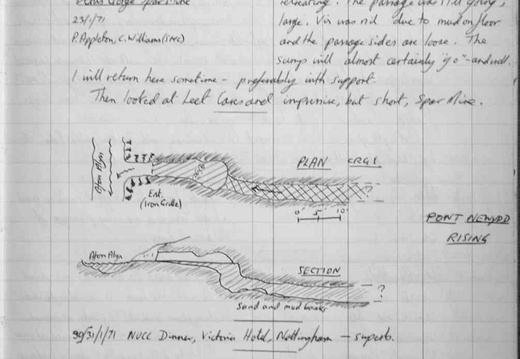 Gorge Spar Mine
retreating. The passage was still going,
23/1/71
large. Vis was nil due to mud on floor
P. Appleton, C. Williams (SMC)
and the passage sides are loose. The
sumps will almost certainly "go" - and will.
I will return here sometime - preferably with support.
Then looked at Leet Caves and impressive, but short, Spar Mine.
PLAN CRG1
Afon Alyn
Ent.
(Iron Grille)
?
0' 5' 10'
PONT NEWYDD
RISING
Afon Alyn
SECTION
?
Sand and mud banks
30/31/1/71 NUCC Dinner, Victoria Hotel, Nottingham - superb.